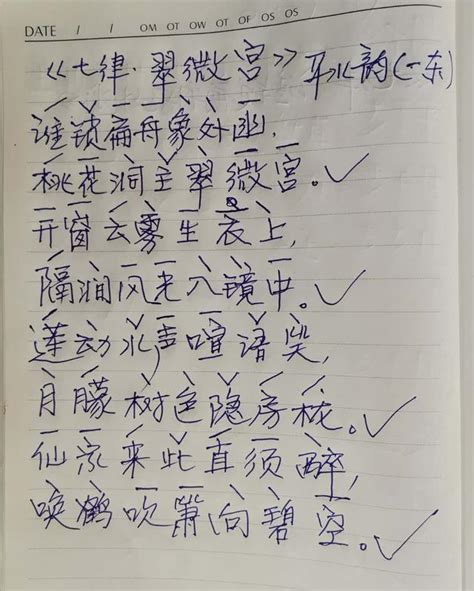 DATE / / OM OT OW OT OF OS OS
《七律·翠微宫》平水韵(一东)
谁锁扁舟象外函,
桃花洞主翠微宫。✓
开窗云雾生衣上,
隔涧风光入镜中。✓
莲动水声喧语笑,
月朦树色隐房栊。✓
仙家来此直须醉,
唤鹤吹箫向碧空。✓